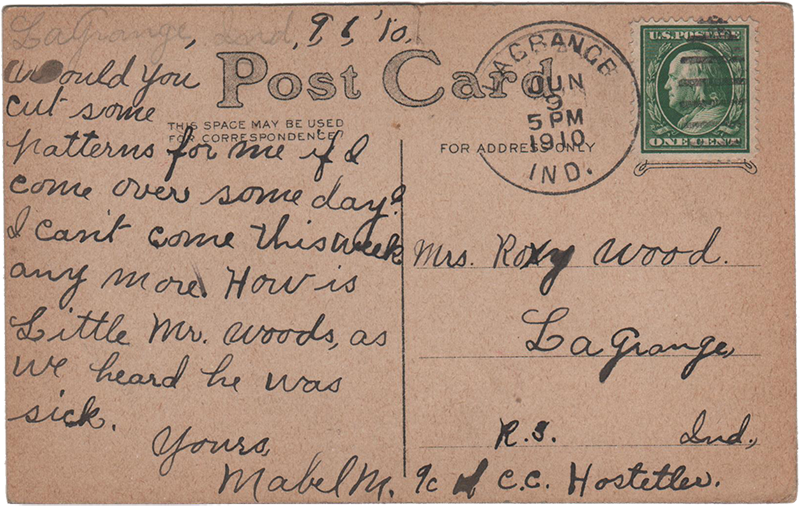 LaGrange, Ind,
Post Card
THIS SPACE MAY BE USED
FOR CORRESPONDENCE
FOR ADDRESS ONLY
LAGRANGE
JUN
9
5 PM
1910
IND.
U.S. POSTAGE
ONE CENT
Would you
cut some
patterns for me if I
come over some day?
I can't come this week
any more. How is
Little Mr. Woods, as
we heard he was
sick.
Yours,
Mabel M. C.C. Hostetler.
Mrs. Roxy Wood.
LaGrange,
Ind.,